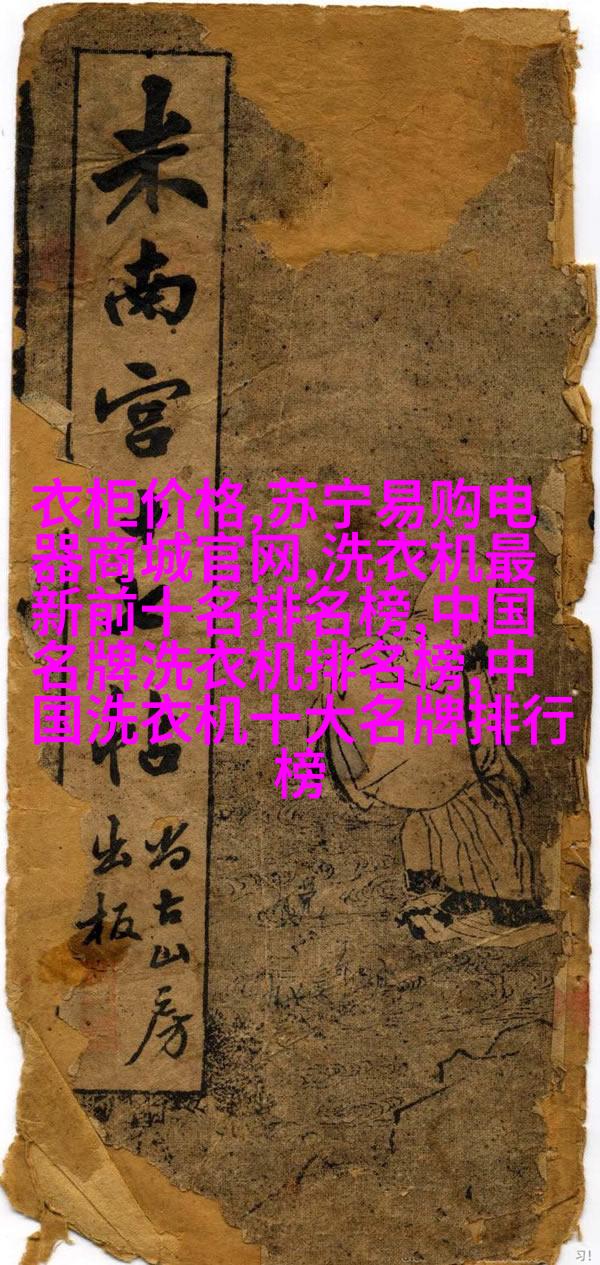 米南宫
帖
尚古山房
出板
衣柜价格,苏宁易购电
器商城官网,洗衣机最
新前十名排名榜,中国
名牌洗衣机排名榜,中
国洗衣机十大名牌排行
榜
习!